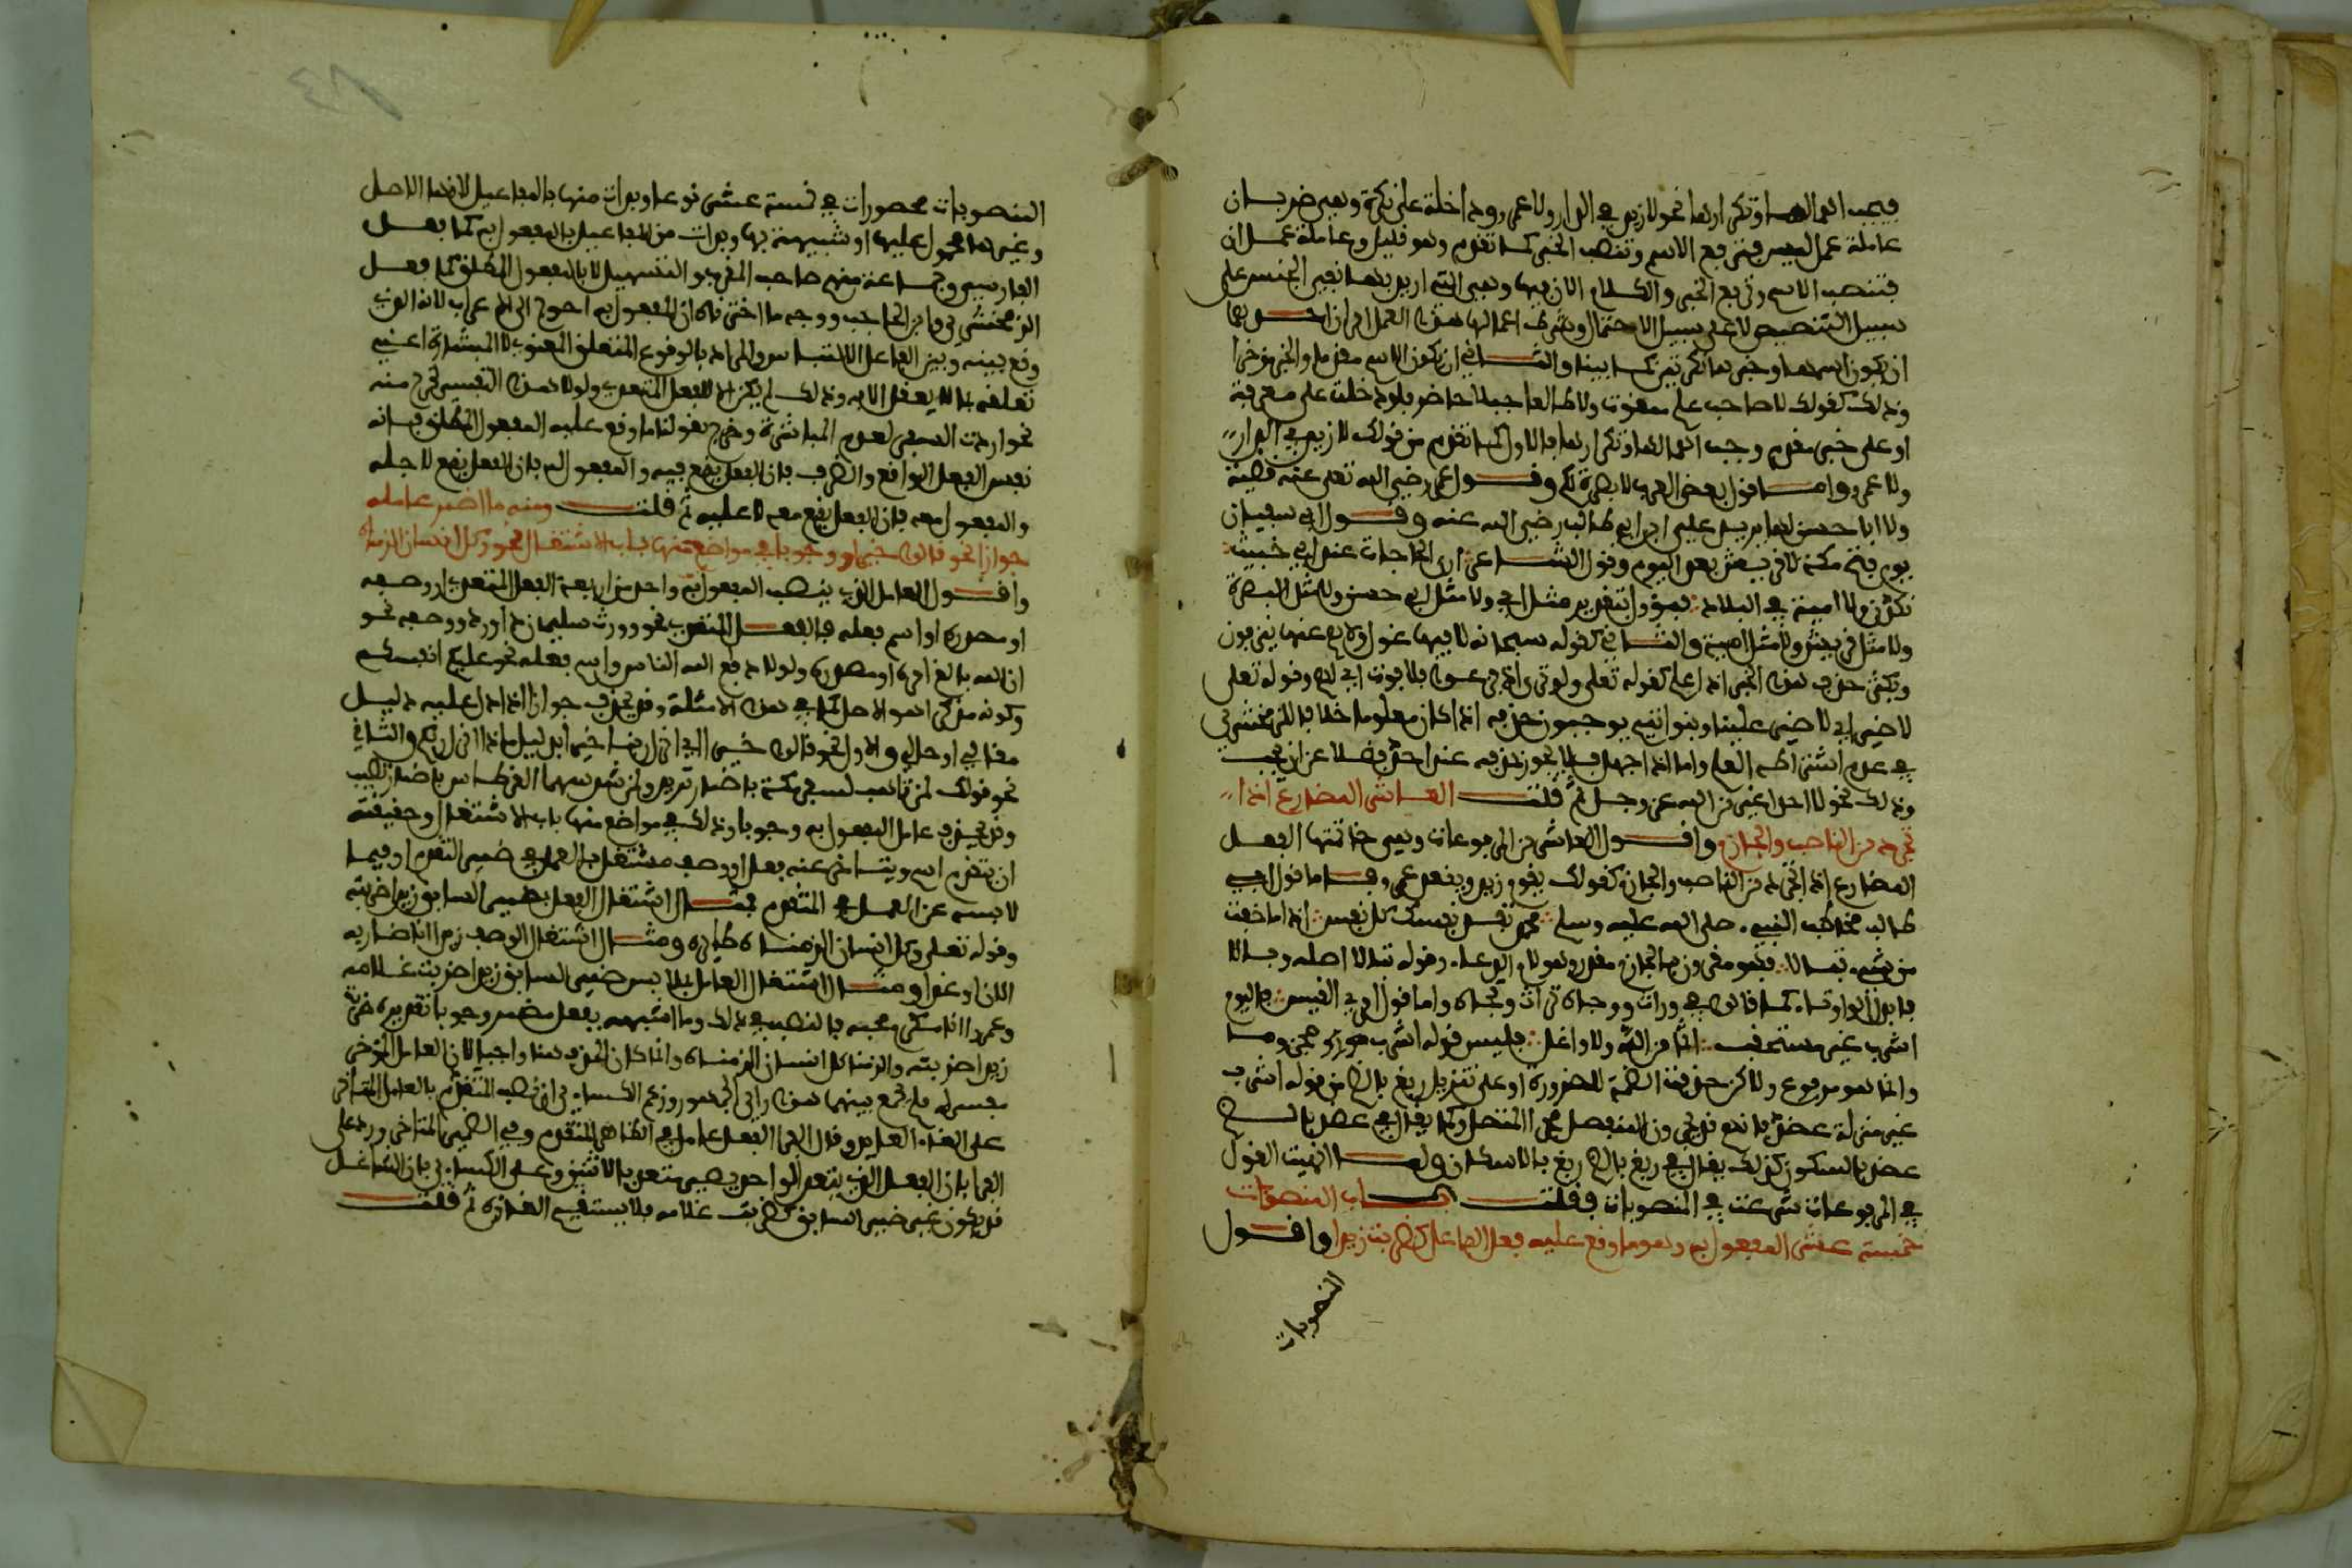 فيجب اهمالها وتكرارها نحو لا زيد في الدار ولا عمرو وداخلة على نكرة وهي ضربان
عاملة عمل ليس فترفع الاسم وتنصب الخبر كما تقدم وهو قليل وعاملة عمل ان
فتنصب الاسم وترفع الخبر والكلام الان فيها وهي التي اريد بها نفي الجنس على
سبيل التنصيص لا على سبيل الاحتمال وشرط اعمالها هذا العمل امران احدهما
ان يكون اسمها وخبرها نكرتين كما بينا والثاني ان يكون الاسم مقدما والخبر مؤخرا
وذلك كقولك لا صاحب علم ممقوت ولا طالعا جبلا حاضر فلو دخلت على معرفة
او على خبر مقدم وجب اهمالها وتكرارها فالاول كما تقدم من قولك لا زيد في الدار
ولا عمرو واما قول بعض العرب لا بصرة لكم وقول عمر رضي الله تعلى عنه قضية
ولا ابا حسن لها يريد علي ابن ابي طالب رضي الله عنه وقول ابي سفيان
يوم فتح مكة لا قريش بعد اليوم وقول الشاعر ارى الحاجات عند ابي خبيب
نكدن ولا امية في البلاد فمؤول بتقدير مثل اي ولا مثل ابي حسن ولا مثل البصرة
ولا مثل قريش ولا مثل امية والثاني كقوله سبحانه لا فيها غول ولا هم عنها ينزفون
ويكثر حذف هذا الخبر اذا علم كقوله تعلى ولو ترى اذ فزعوا فلا فوت اي لهم وقوله تعلى
لا ضير اي لا ضير علينا وبنو تميم يوجبون حذفه اذا كان معلوما خلافا للزمخشري
في عدم اشتراط العلم واما اذا جهل فلا يجوز حذفه عند احد فضلا عن ان يجب
وذلك نحو لا احد اغير من الله عز وجل ثم قلت العاشر المضارع اذا
تجرد من الناصب والجازم واقول العاشر من المرفوعات وهي خاتمتها الفعل
المضارع اذا تجرد من الناصب والجازم كقولك يقوم زيد ويقعد عمرو فاما قول ابي
طالب مخاطب النبي صلى الله عليه وسلم محمد تفد نفسك كل نفس اذا ما خفت
من شيء تبالا فهو مقرون بالجازم مقدر وهو لام الدعاء وقوله تبالا اصله وبالا
فابدل الواو تاء كما قالوا في وراث ووجاه تراث وتجاه واما قول امرئ القيس فاليوم
اشرب غير مستحقب اثما من الله ولا واغل فليس قوله اشرب مجزوما
وانما هو مرفوع ولاكن حذفت الضمة للضرورة او على تنزيل ربغ بالضم من قوله اشرب
غير منزلة عضد فانهم قد يجرون المنفصل مجرى المتصل وكما يقال في عضد بالضم
عضد بالسكون كذلك يقال في ربغ بالضم ربغ بالاسكان ولما انهيت القول
في المرفوعات شرعت في المنصوبات فقلت باب المنصوبات
خمسة عشر المفعول به وهو ما وقع عليه فعل الفاعل كضربت زيدا واقول
المنصوبات
المنصوبات محصورات في خمسة عشر نوعا وبدات منها بالمفاعيل لانها الاصل
وغيرها محمول عليها او شبيهة بها وبدات من المفاعيل بالمفعول به كما فعل
الفارسي وجماعة منهم صاحب المقرب والتسهيل لا بالمفعول المطلق كما فعل
الزمخشري وابن الحاجب ووجه ما اخترناه ان المفعول به احوج الى الاعراب لانه الذي
وقع بينه وبين الفاعل الالتباس والمراد بالوقوع التعلق المعنوي لا المباشرة اعني
تعلقه بما لا يعقل الا به وذلك لم يكن الا للفعل المتعدي ولولا هذا التفسير لخرج منه
نحو اردت السفر لعدم المباشرة وخرج بقولنا ما وقع عليه المفعول المطلق فانه
نفس الفعل الواقع والظرف فان الفعل يقع فيه والمفعول له فان الفعل يقع لاجله
والمفعول معه فان الفعل يقع معه لا عليه ثم قلت ومنه ما اضمر عامله
جوازا نحو قالوا خيرا ووجوبا في مواضع منها باب الاشتغال نحو وكل انسان الزمناه
واقول العامل الذي ينصب المفعول به واحد من اربعة الفعل المتعدي او وصفه
او مصدره او اسم فعله فالفعل المتعدي نحو وورث سليمان داود ووصفه نحو
ان الله بالغ امره ومصدره ولولا دفع الله الناس واسم فعله نحو عليكم انفسكم
وكونه مذكرا هو الاصل كما في هذه الامثلة وقد يحذف جوازا اذا دل عليه دليل
مقالي او حالي والاول نحو قالوا خيرا اي انزل ربنا خيرا بدليل ماذا انزل ربكم والثاني
نحو قولك لمن تاهب لسفر مكة باضمار تريد ولمن سدد سهما القرطاس باضمار تصيب
وقد يحذف عامل المفعول به وجوبا وذلك في مواضع منها باب الاشتغال وحقيقته
ان يتقدم اسم ويتاخر عنه فعل او وصف مشتغل بالعمل في ضمير المتقدم او فيما
لابسه عن العمل في المتقدم فمثال اشتغال الفعل بضمير السابق زيدا ضربته
وقوله تعلى وكل انسان الزمناه طائره ومثال اشتغال الوصف زيدا انا ضاربه
الان او غدا ومثال اشتغال العامل بملابس ضمير السابق زيدا ضربت غلامه
وعمرا انا مكرم محبه فالنصب في ذلك وما اشبهه بفعل مضمر وجوبا تقديره ضربت
زيدا ضربته والزمنا كل انسان الزمناه وانما كان الحذف هنا واجبا لان العامل المؤخر
مفسر له فلم يجمع بينهما هذا راي الجمهور وزعم الكساءي ان نصب المتقدم بالعامل المتأخر
على الغاء العائد وقال الفرا الفعل عامل في الظاهر المتقدم وفي الضمير المتاخر ورد على
الفرا بان الفعل الذي يتعدى لواحد يصير متعديا لاثنين وعلى الكساءي بان الشاغل
قد يكون غير ضمير السابق كضربت غلامه فلا يستقيم الغاؤه ثم قلت